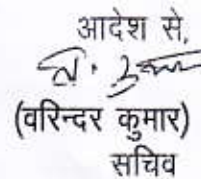 आदेश से,
(वरिन्दर कुमार)
सचिव